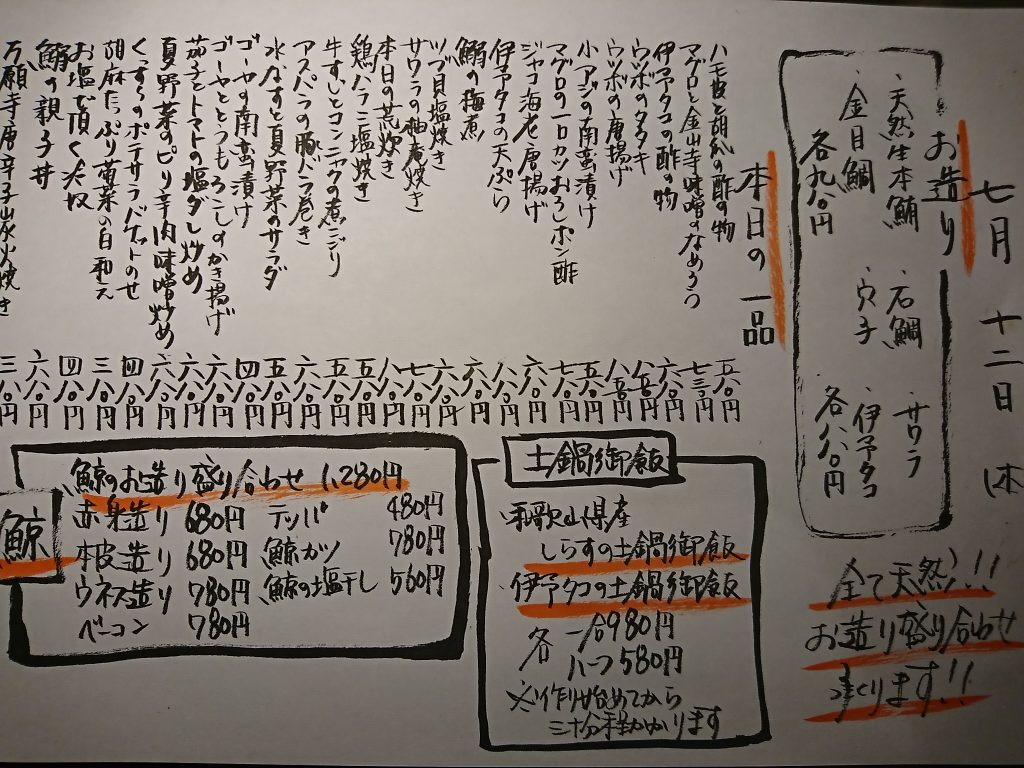 七月十二日(木)
お造り
・天然生本鮪 ・石鯛 ・サワラ
・金目鯛 ・穴子 ・伊予タコ
各九八〇円 各八八〇円
全て天然!!
お造り盛り合わせ
承ります!!
本日の一品
ハモ皮と胡瓜の酢の物 五八〇円
マグロと金山寺味噌のなめろう 七三〇円
伊予タコの酢の物 六八〇円
ウツボのタタキ 八五〇円
ウツボの唐揚げ 八五〇円
小アジの南蛮漬け 五八〇円
マグロの一口カツおろしポン酢 七八〇円
ジャコ海老唐揚げ 六八〇円
伊予タコの天ぷら 八八〇円
鰯の梅煮 六八〇円
ツブ貝塩焼き 六八〇円
サワラの柚庵焼き 七八〇円
本日の荒炊き 八八〇円
鶏ハラミ塩焼き 五八〇円
牛すじとコンニャクの煮こごり 五八〇円
アスパラの豚バラ巻き 六八〇円
水なすと夏野菜のサラダ 五八〇円
ゴーヤの南蛮漬け 四八〇円
ゴーヤととうもろこしのかき揚げ 六八〇円
茄子とトマトの塩ダレ炒め 六八〇円
夏野菜のピリ辛肉味噌炒め 六八〇円
のポテサラバゲットのせ 四八〇円
胡麻たっぷり菊菜の白和え 三八〇円
お塩で頂く冷奴 四八〇円
鰯の親子丼 六八〇円
万願寺唐辛子炭火焼き 三八〇円
土鍋御飯
・和歌山県産
しらすの土鍋御飯
・伊予タコの土鍋御飯
各 一合980円
ハーフ580円
※作り始めてから
三十分程かかります
鯨
鯨のお造り盛り合わせ 1,280円
赤身造り 680円 テッパ 480円
本皮造り 680円 鯨カツ 780円
ウネス造り 780円 鯨の塩干し 560円
ベーコン 780円